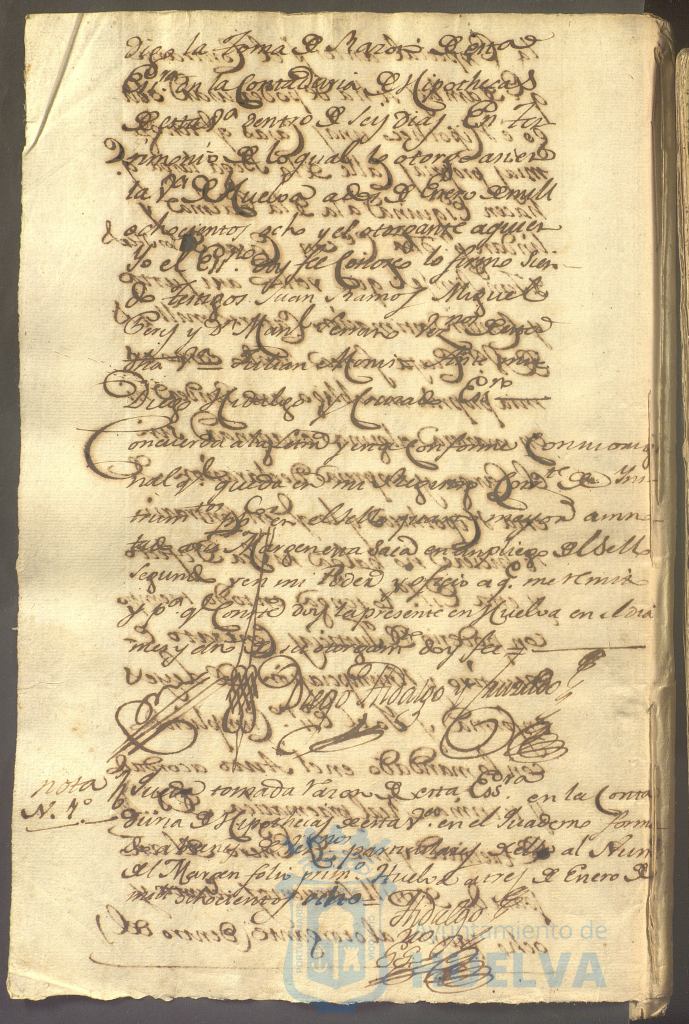 dige la toma de Razon de esta
Essra. en la Contaduria de Hipothecas
de esta Va. dentro de seys dias. En tes
timonio de lo qual lo otorgo asi en
la Va. de Huelva a dos de Enero de mill
ochocientos ocho y el otorgante a quien
Yo el Essno. doy fee Conosco lo firmo sien
do testigos Juan Ramos Miguel
Peres y Dn. Manl. Serrano
Va. Julian Ante mi
Diego Hidalgo y Cruzado Essno.
Concuerda a la letra y en conforme con su origi
nal qe. queda en mi Registro de Ins
trumtos. ppcos. en el sello quarto mayor a mi no
tado a su Margen esta Saca en un pliego del Sello
segundo y en mi Poder y oficio a qe. me remito
y pa. qe. Conste doy la presente en Huelva en el dia
mes y año de su otorgamto. doy fee =
Diego Hidalgo y Cruzado
nota
N. 4º
Queda tomada razon de esta Essra. en la Conta
duria de Hipothecas de esta Va. en el Quaderno forma
do a particulares de ello al Num
del Margen folio primo Huelva a tres de Enero de
mil ochocientos y ocho =
Hidalgo
Ayuntamiento de
HUELVA